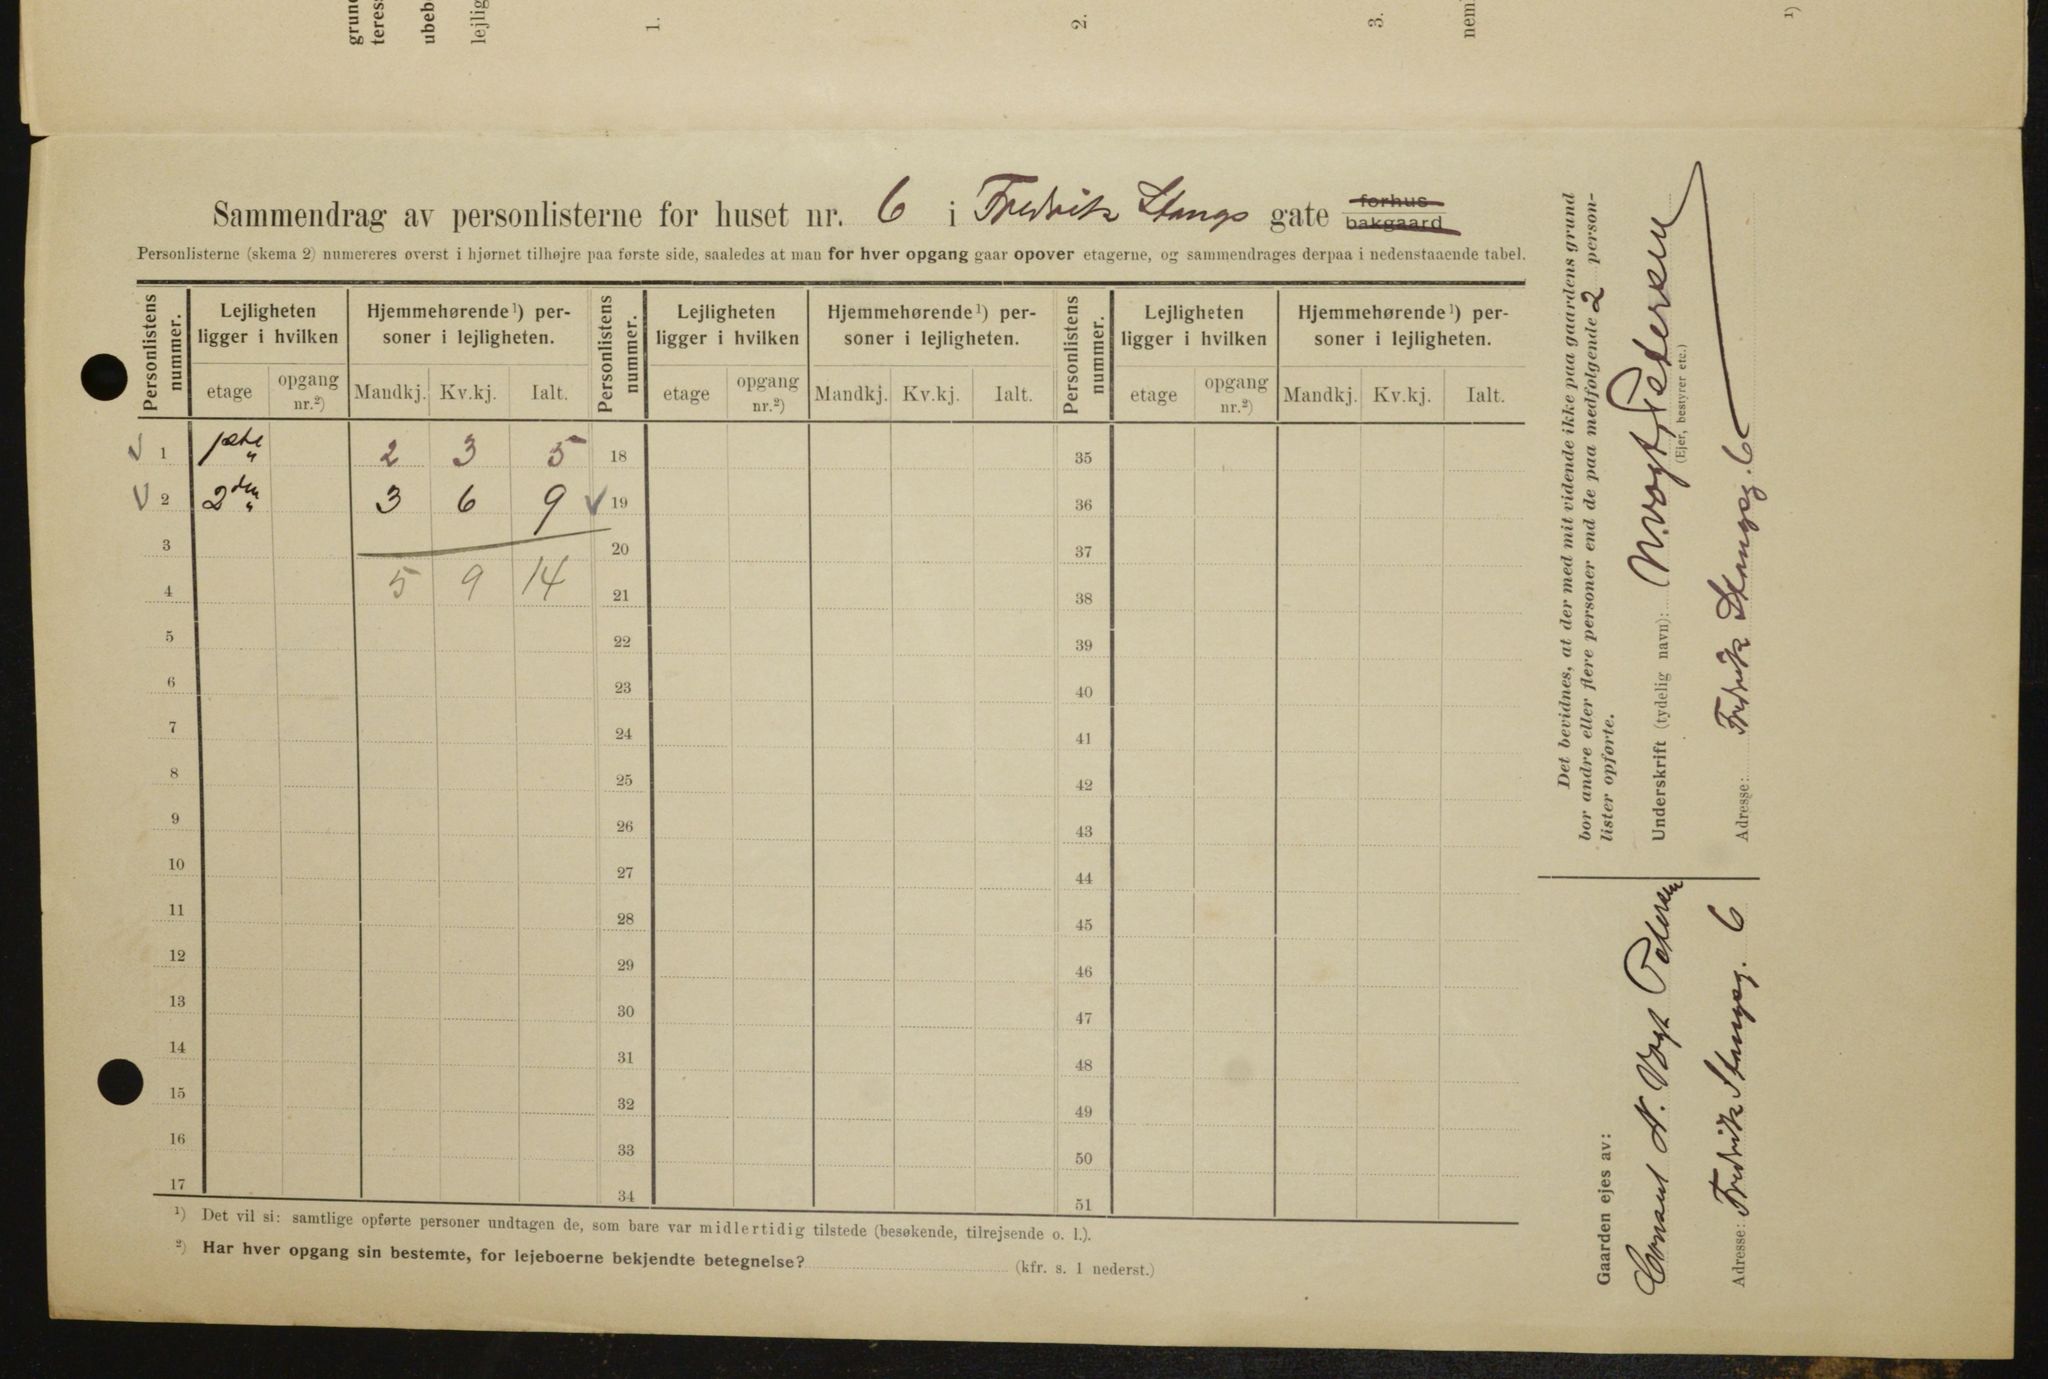 grun
teres
ubeb
lejlig
1.
2.
3.
nem
1)
Sammendrag av personlisterne for huset nr. 6 i Fredrik Stangs gate forhus bakgaard
Personlisterne (skema 2) numereres øverst i hjørnet tilhøjre paa første side, saaledes at man for hver opgang gaar opover etagerne, og sammendrages derpaa i nedenstaaende tabel.
Personlistens nummer. Lejligheten ligger i hvilken Hjemmehørende¹) personer i lejligheten. Personlistens nummer. Lejligheten ligger i hvilken Hjemmehørende¹) personer i lejligheten. Personlistens nummer. Lejligheten ligger i hvilken Hjemmehørende¹) personer i lejligheten.
etage opgang nr.²) Mandkj. Kv.kj. Ialt. etage opgang nr.²) Mandkj. Kv.kj. Ialt. etage opgang nr.²) Mandkj. Kv.kj. Ialt.
1 1ste " 2 3 5 18 35
2 2den " 3 6 9 19 36
3 20 37
4 5 9 14 21 38
5 22 39
6 23 40
7 24 41
8 25 42
9 26 43
10 27 44
11 28 45
12 29 46
13 30 47
14 31 48
15 32 49
16 33 50
17 34 51
¹) Det vil si: samtlige opførte personer undtagen de, som bare var midlertidig tilstede (besøkende, tilrejsende o. l.).
²) Har hver opgang sin bestemte, for lejeboerne bekjendte betegnelse? (kfr. s. 1 nederst.)
Det bevidnes, at der med mit vidende ikke paa gaardens grund
bor andre eller flere personer end de paa medfølgende 2 person-
lister opførte.
Underskrift (tydelig navn): N. Vogt Petersen
(Ejer, bestyrer etc.)
Adresse: Fredrik Stangsg. 6
Gaarden ejes av:
N. Vogt Petersen
Adresse: Fredrik Stangsg. 6